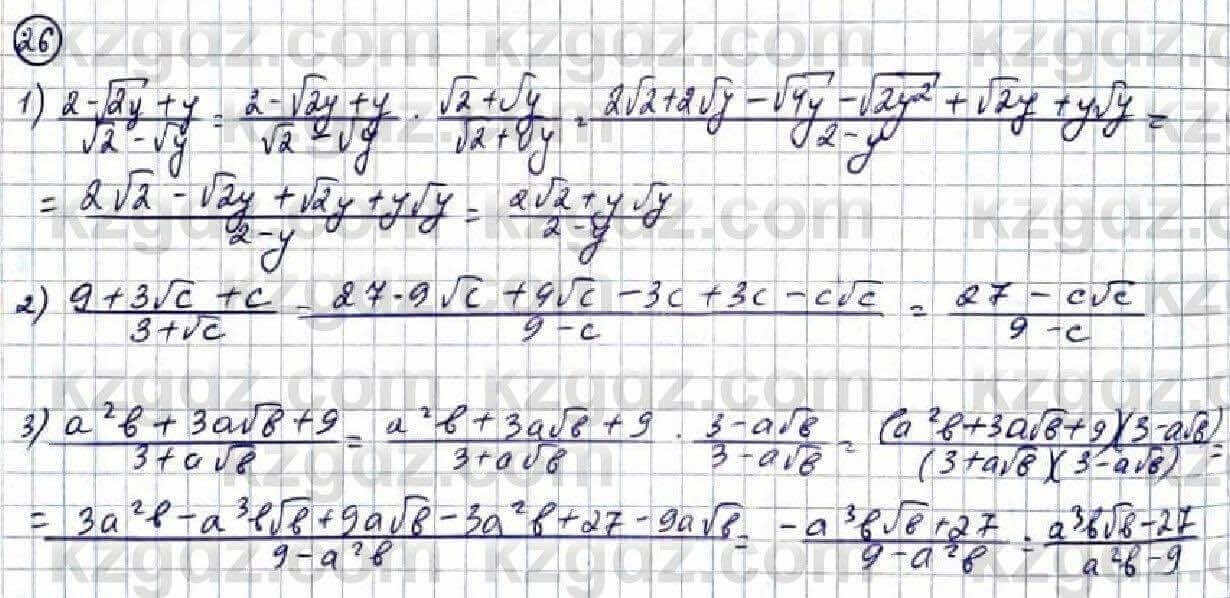 26
1) (2-√2y+y)/(√2-√y) = (2-√2y+y)/(√2-√y) · (√2+√y)/(√2+√y) = (2√2+2√y-√4y-√2y²+√2y+y√y)/(2-y) =
= (2√2-√2y+√2y+y√y)/(2-y) = (2√2+y√y)/(2-y)
2) (9+3√c+c)/(3+√c) = (27-9√c+9√c-3c+3c-c√c)/(9-c) = (27-c√c)/(9-c)
3) (a²b+3a√b+9)/(3+a√b) = (a²b+3a√b+9)/(3+a√b) · (3-a√b)/(3-a√b) = ((a²b+3a√b+9)(3-a√b))/((3+a√b)(3-a√b)) =
= (3a²b-a³b√b+9a√b-3a²b+27-9a√b)/(9-a²b) = (-a³b√b+27)/(9-a²b) = (a³b√b-27)/(a²b-9)
kzgdz.com